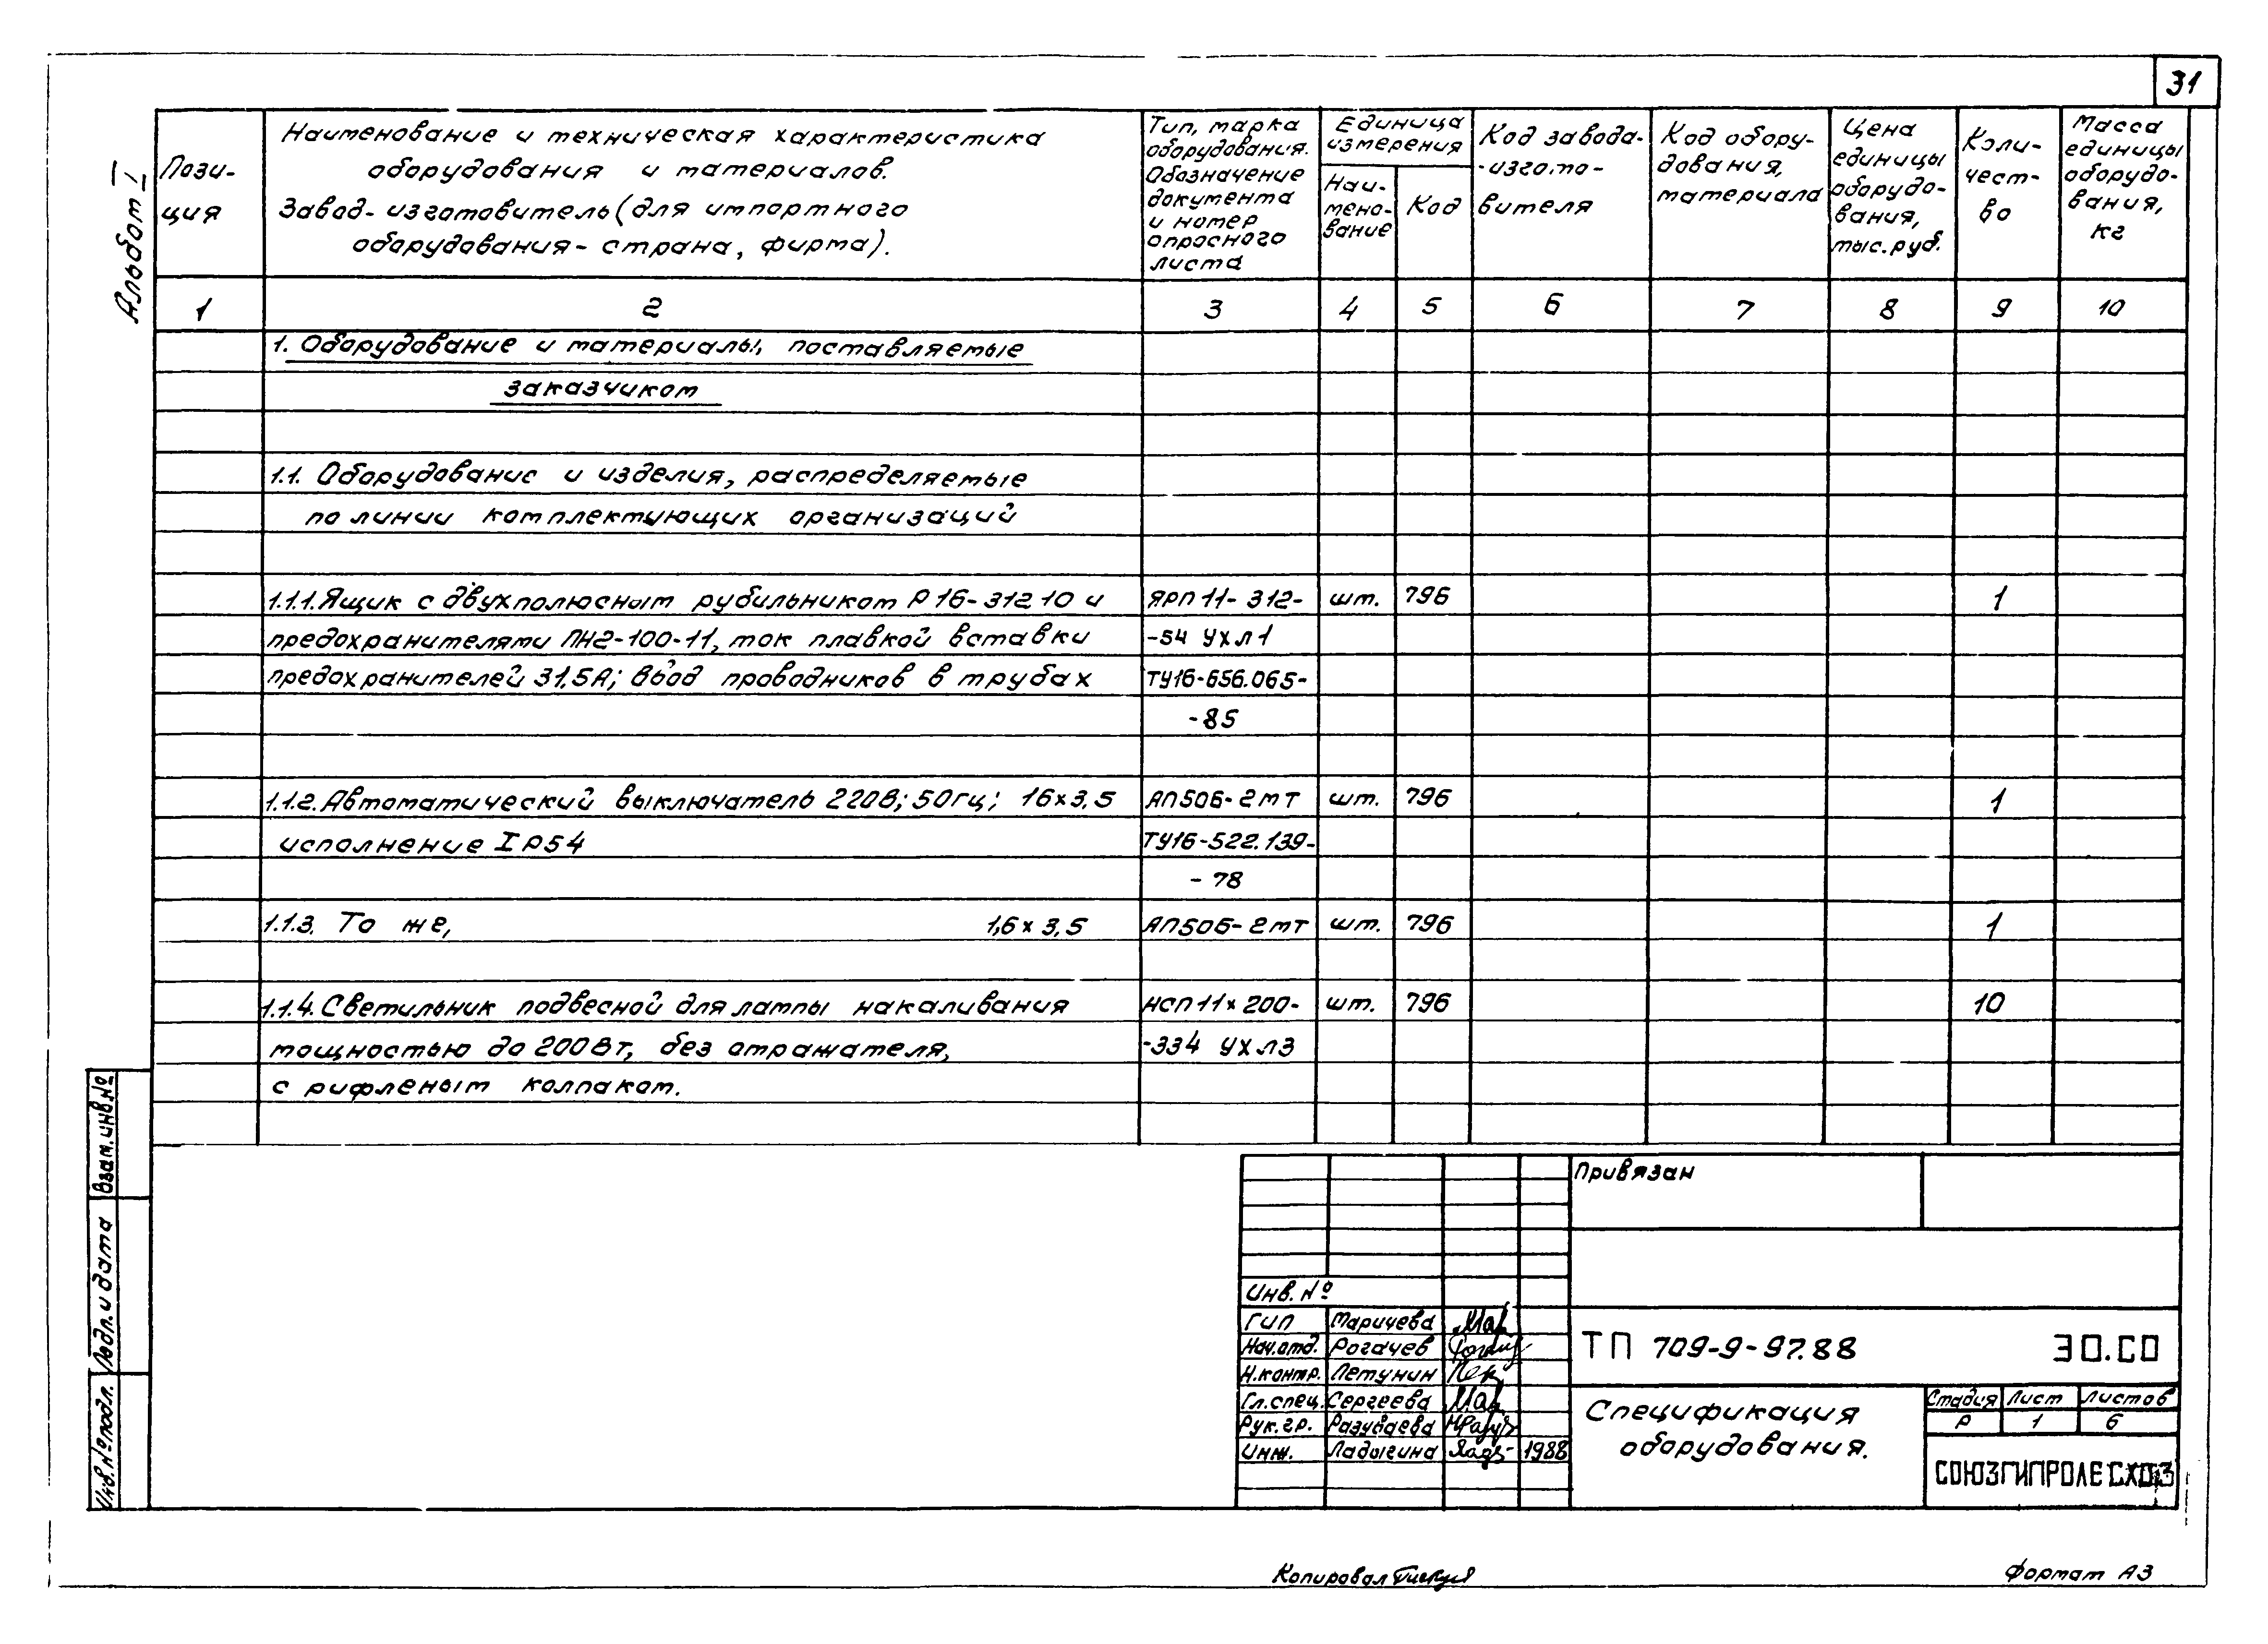 31
Альбом I
Пози-
ция
Наименование и техническая характеристика
оборудования и материалов.
Завод-изготовитель (для импортного
оборудования - страна, фирма).
Тип, марка
оборудования.
Обозначение
документа
и номер
опросного
листа
Единица
измерения
Наи-
мено-
вание
Код
Код завода-
-изгото-
вителя
Код обору-
дования,
материала
Цена
единицы
оборудо-
вания,
тыс. руб.
Коли-
чест-
во
Масса
единицы
оборудо-
вания,
кг
1 2 3 4 5 6 7 8 9 10
1. Оборудование и материалы, поставляемые
заказчиком
1.1. Оборудование и изделия, распределяемые
по линии комплектующих организаций
1.1.1. Ящик с двухполюсным рубильником Р16-31210 и ЯРП11-312- шт. 796 1
предохранителями ПН2-100-11, ток плавкой вставки -54 УХЛ1
предохранителей 31,5А; ввод проводников в трубах ТУ16-656.065-
-85
1.1.2. Автоматический выключатель 220В; 50гц; 16×3,5 АП50Б-2мт шт. 796 1
исполнение IP54 ТУ16-522.139-
-78
1.1.3. То же, 1,6×3,5 АП50Б-2мт шт. 796 1
1.1.4. Светильник подвесной для лампы накаливания НСП11×200- шт. 796 10
мощностью до 200Вт, без отражателя, -334 УХЛ3
с рифленым колпаком.
Взам. инв. №
Подп. и дата
Инв. № подл.
Привязан
Инв. №
ГИП Маричева
Нач.отд. Рогачев
Н.контр. Петунин
Гл.спец. Сергеева
Рук.гр. Разуваева
Инж. Ладыгина 1988
ТП 709-9-97.88 ЭО.СО
Спецификация
оборудования.
Стадия Лист Листов
Р 1 6
СОЮЗГИПРОЛЕСХОЗ
Копировал
Формат А3